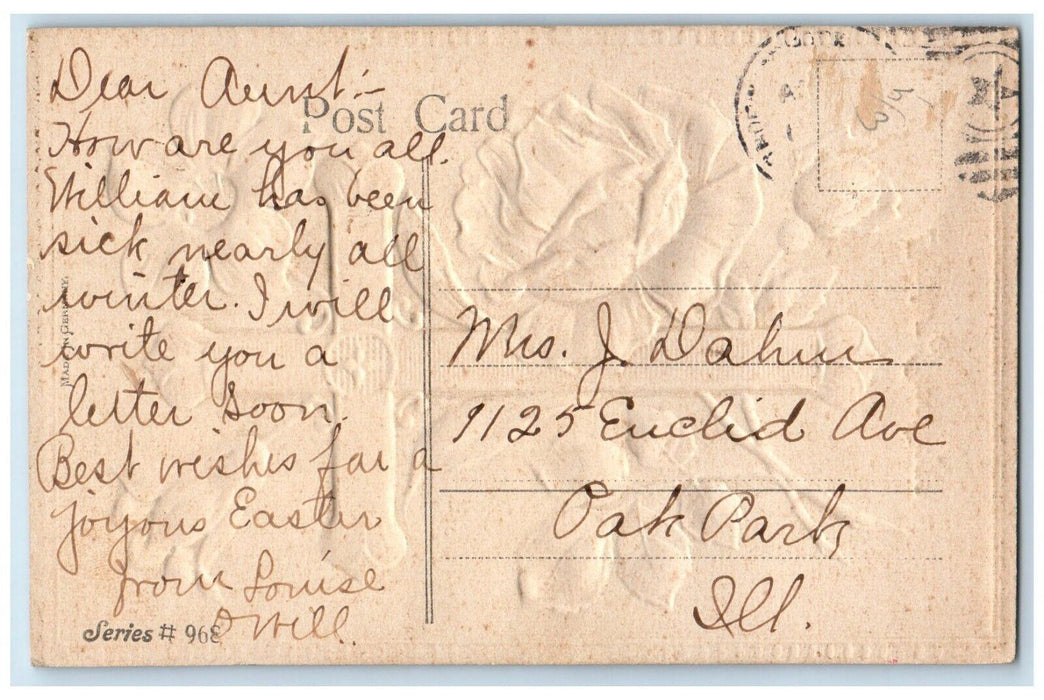 Post Card
Dear Aunt:-
How are you all.
William has been
sick nearly all
winter. I will
write you a
letter soon.
Best wishes for a
joyous Easter
from Louise
& Will.
Series # 968
Mrs. J. Dahm
1125 Euclid Ave
Oak Park
Ill.